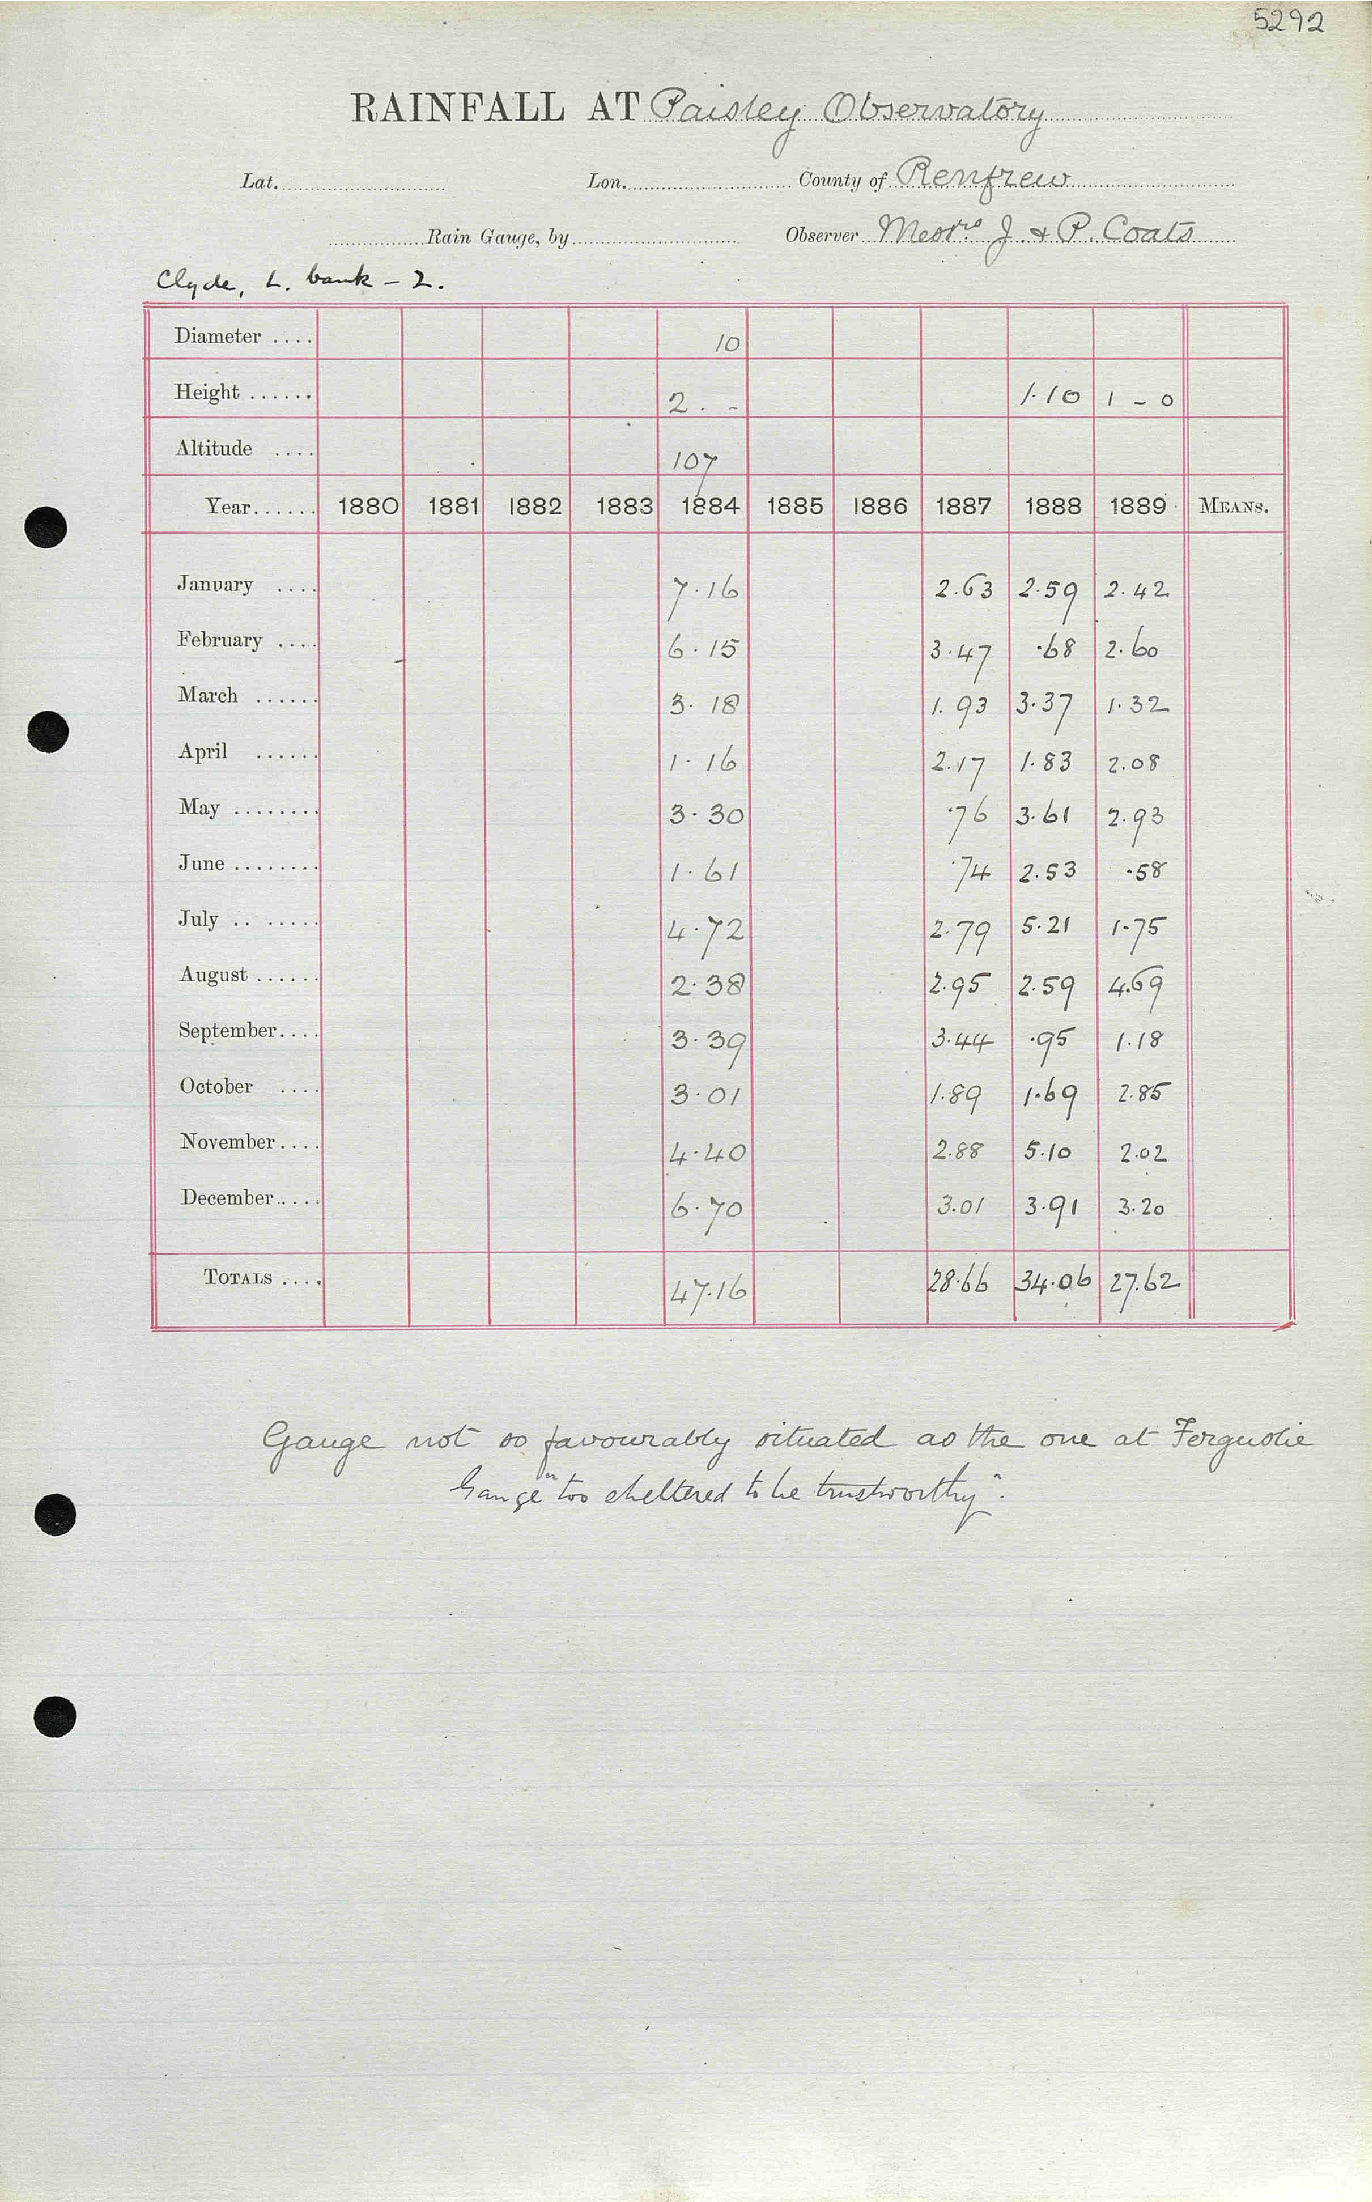 5292
RAINFALL AT Paisley Observatory
Lat. Lon. County of Renfrew
Rain Gauge, by Observer Messrs J. & P. Coats
Clyde, L. bank - 2.
Diameter .... 10
Height ...... 2. - 1.10 1 - 0
Altitude .... 107
Year...... 1880 1881 1882 1883 1884 1885 1886 1887 1888 1889 MEANS.
January .... 7.16 2.63 2.59 2.42
February .... 6.15 3.47 .68 2.60
March ...... 3.18 1.93 3.37 1.32
April ...... 1.16 2.17 1.83 2.08
May ........ 3.30 .76 3.61 2.93
June ........ 1.61 .74 2.53 .58
July .. ..... 4.72 2.79 5.21 1.75
August ...... 2.38 2.95 2.59 4.69
September.... 3.39 3.44 .95 1.18
October .... 3.01 1.89 1.69 2.85
November.... 4.40 2.88 5.10 2.02
December..... 6.70 3.01 3.91 3.20
TOTALS .... 47.16 28.66 34.06 27.62
Gauge not so favourably situated as the one at Ferguslie
Gauge "too sheltered to be trustworthy".